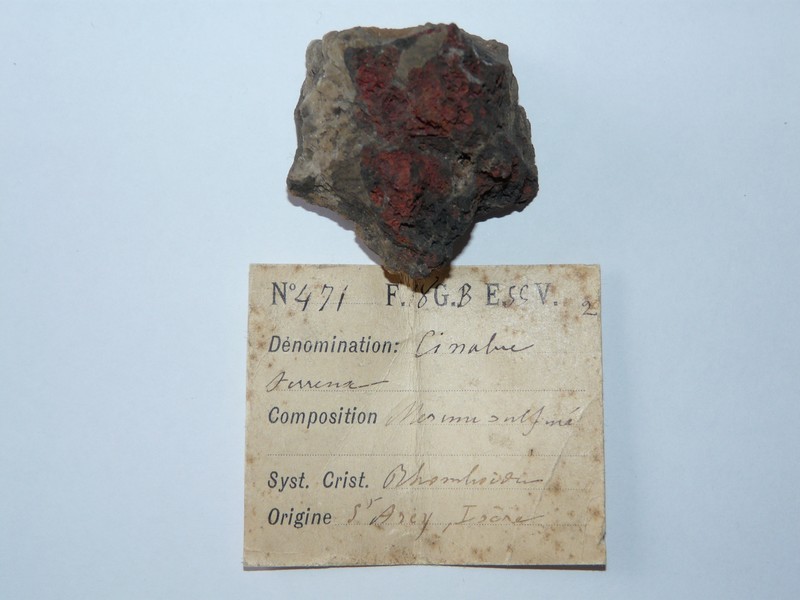 Nº 471 F. 8 G. B E. 59 V. 2
Dénomination: Cinabre
terreux
Composition Mercure sulfuré
Syst. Crist. Rhomboédr
Origine St Arey, Isère